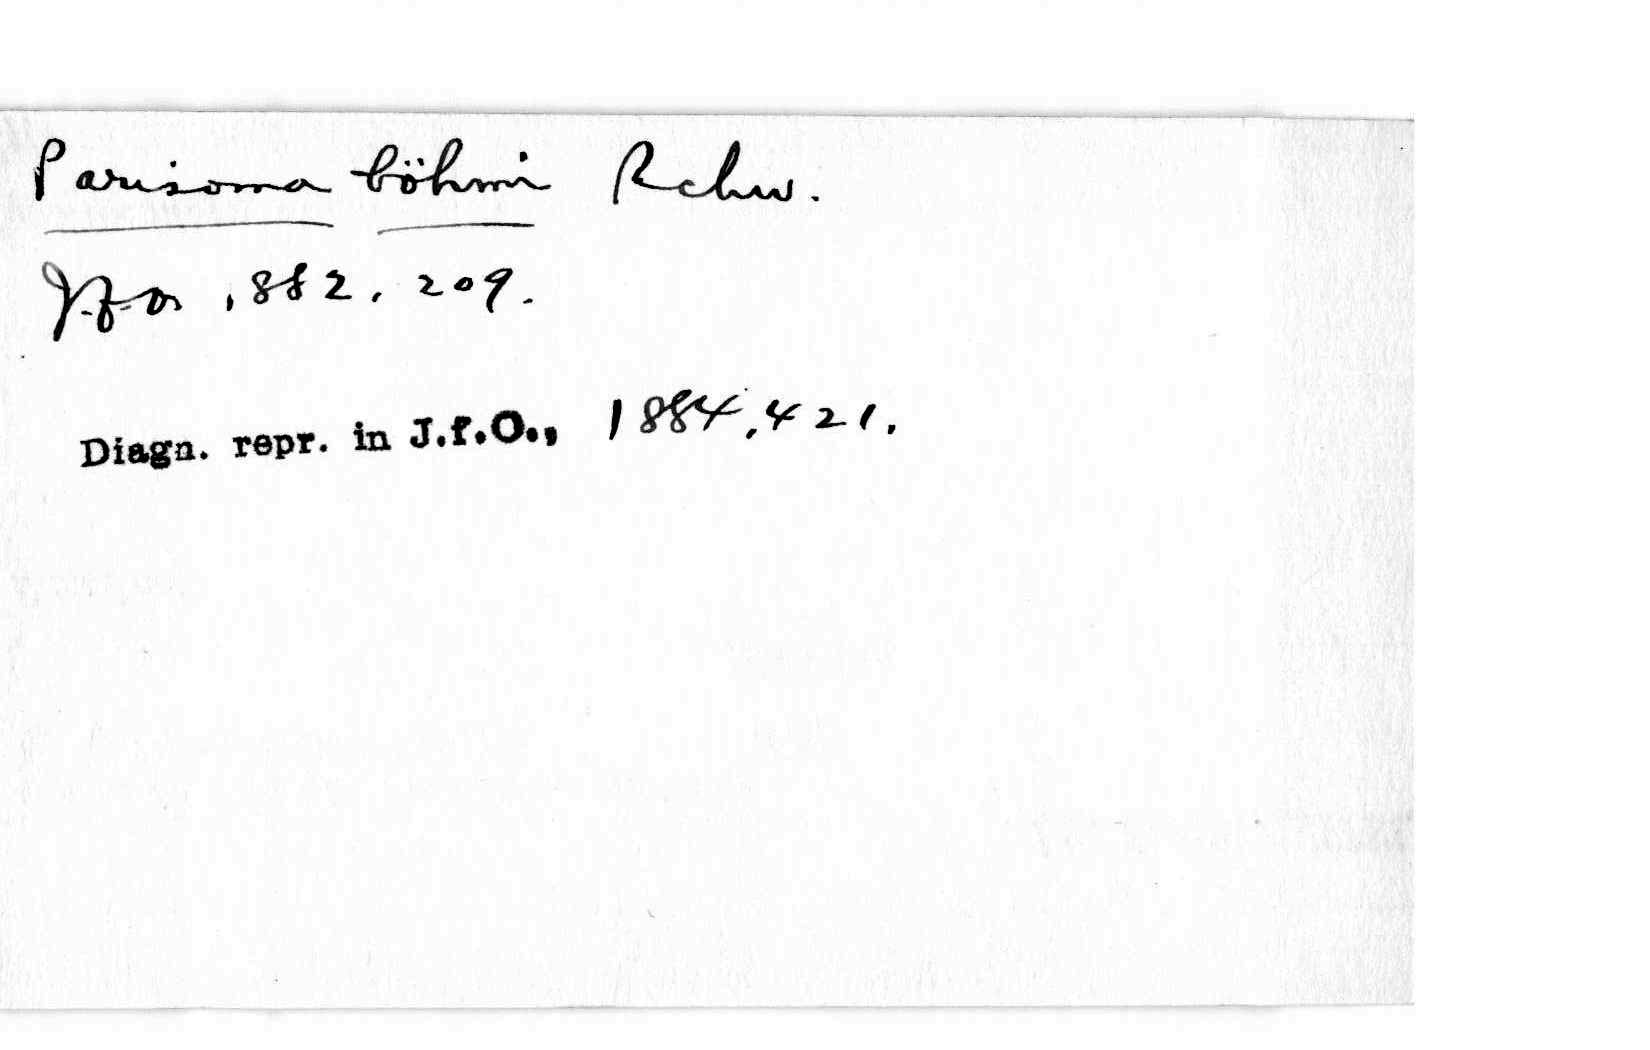 Parisoma böhmi Rchw.
J.f.O. 1882, 209.
Diagn. repr. in J.f.O., 1884, 421.